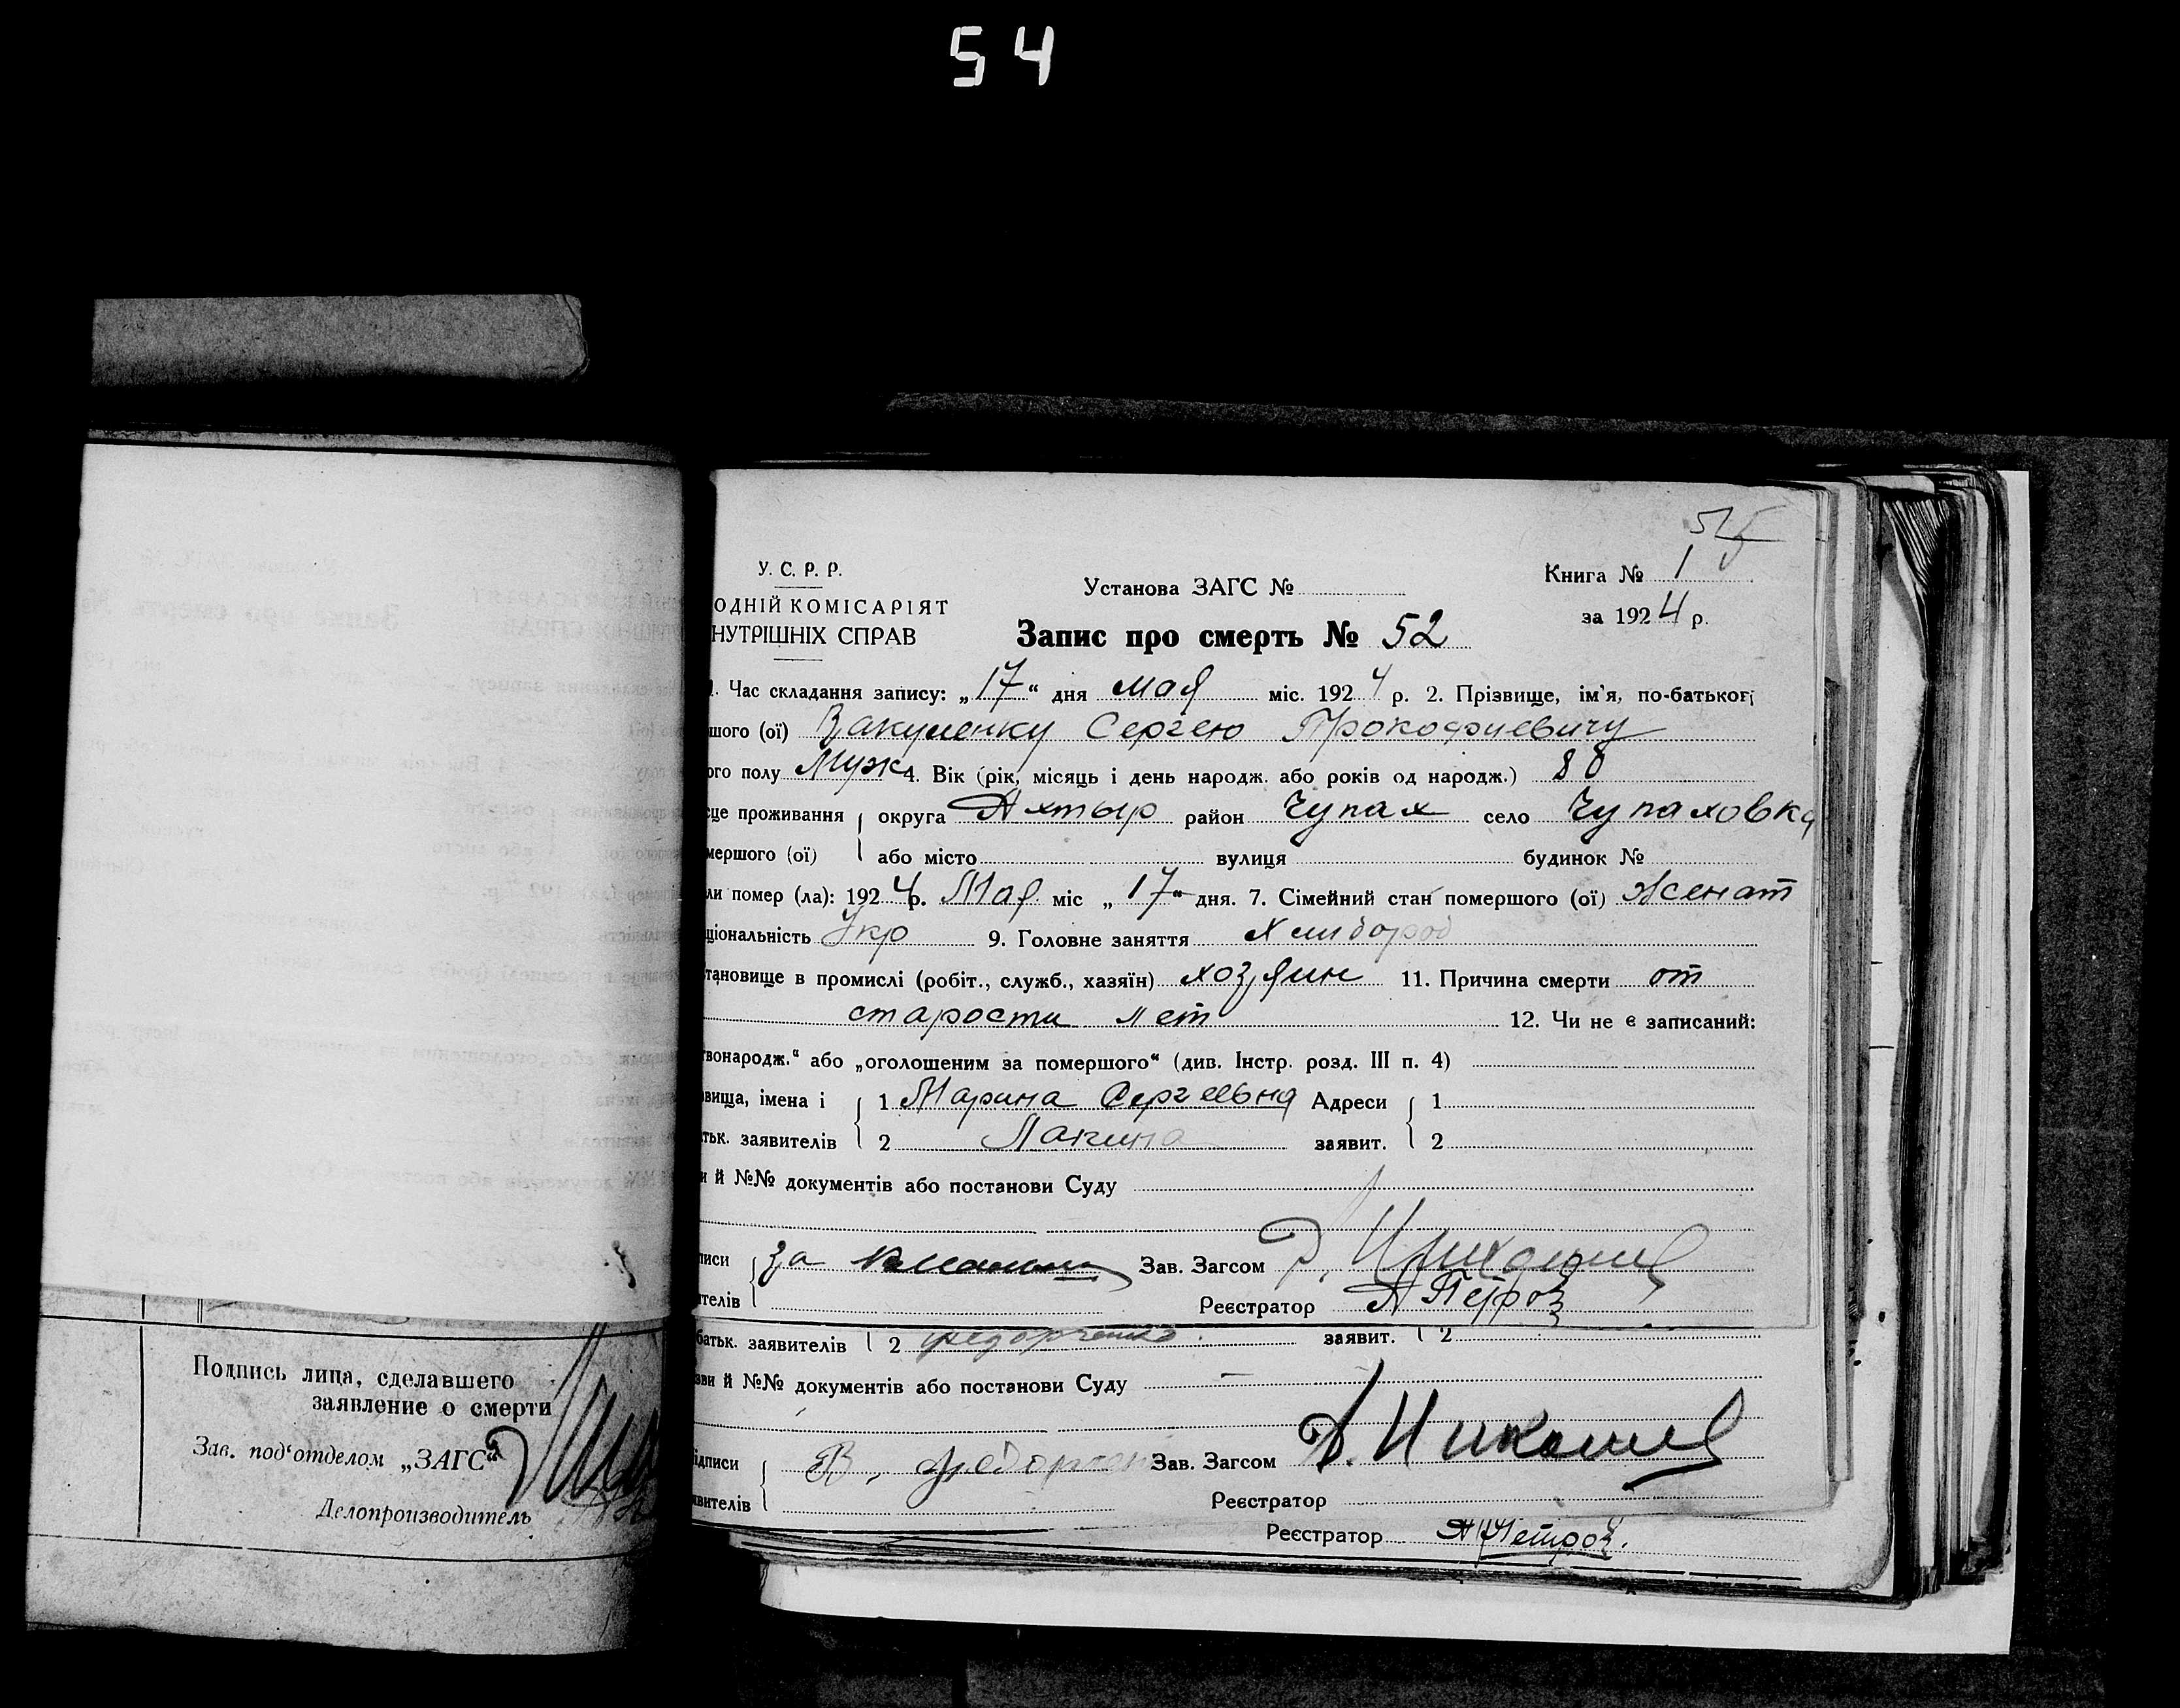 54
55
У. С. Р. Р.
ОДНІЙ КОМІСАРІЯТ
НУТРІШНІХ СПРАВ
Установа ЗАГС №
Книга № 1
за 1924 р.
Запис про смерть № 52
1. Час складання запису: „17“ дня мая міс. 1924 р. 2. Прізвище, ім'я, по-батькові
шого (ої) Вакуленку Сергею Прокофиевичу
ого полу Муж 4. Вік (рік, місяць і день народж. або років од народж.) 88
сце проживання округа Ахтыр район Чупах село Чупаховка
мершого (ої) або місто вулиця будинок №
ли помер (ла): 1924 р. Мая міс „17“ дня. 7. Сімейний стан помершого (ої) Женат
ціональність Укр 9. Головне заняття Хлибороб
тановище в промислі (робіт., служб., хазяїн) хозяин 11. Причина смерти от
старости лет 12. Чи не є записаний:
твонародж.“ або „оголошеним за помершого“ (див. Інстр. розд. III п. 4)
звища, імена і 1 Марина Сергеевна Адреси 1
тьк. заявителів 2 заявит. 2
и й №№ документів або постанови Суду
писи за Зав. Загсом
ителів Реєстратор А Петров
батьк. заявителів 2 Федорченко заявит. 2
зви й №№ документів або постанови Суду —
ідписи В. Федорчен Зав. Загсом
явителів Реєстратор
Реєстратор А Петров.
Подпись лица, сделавшего
заявление о смерти
Зав. под'отделом „ЗАГС“
Делопроизводитель